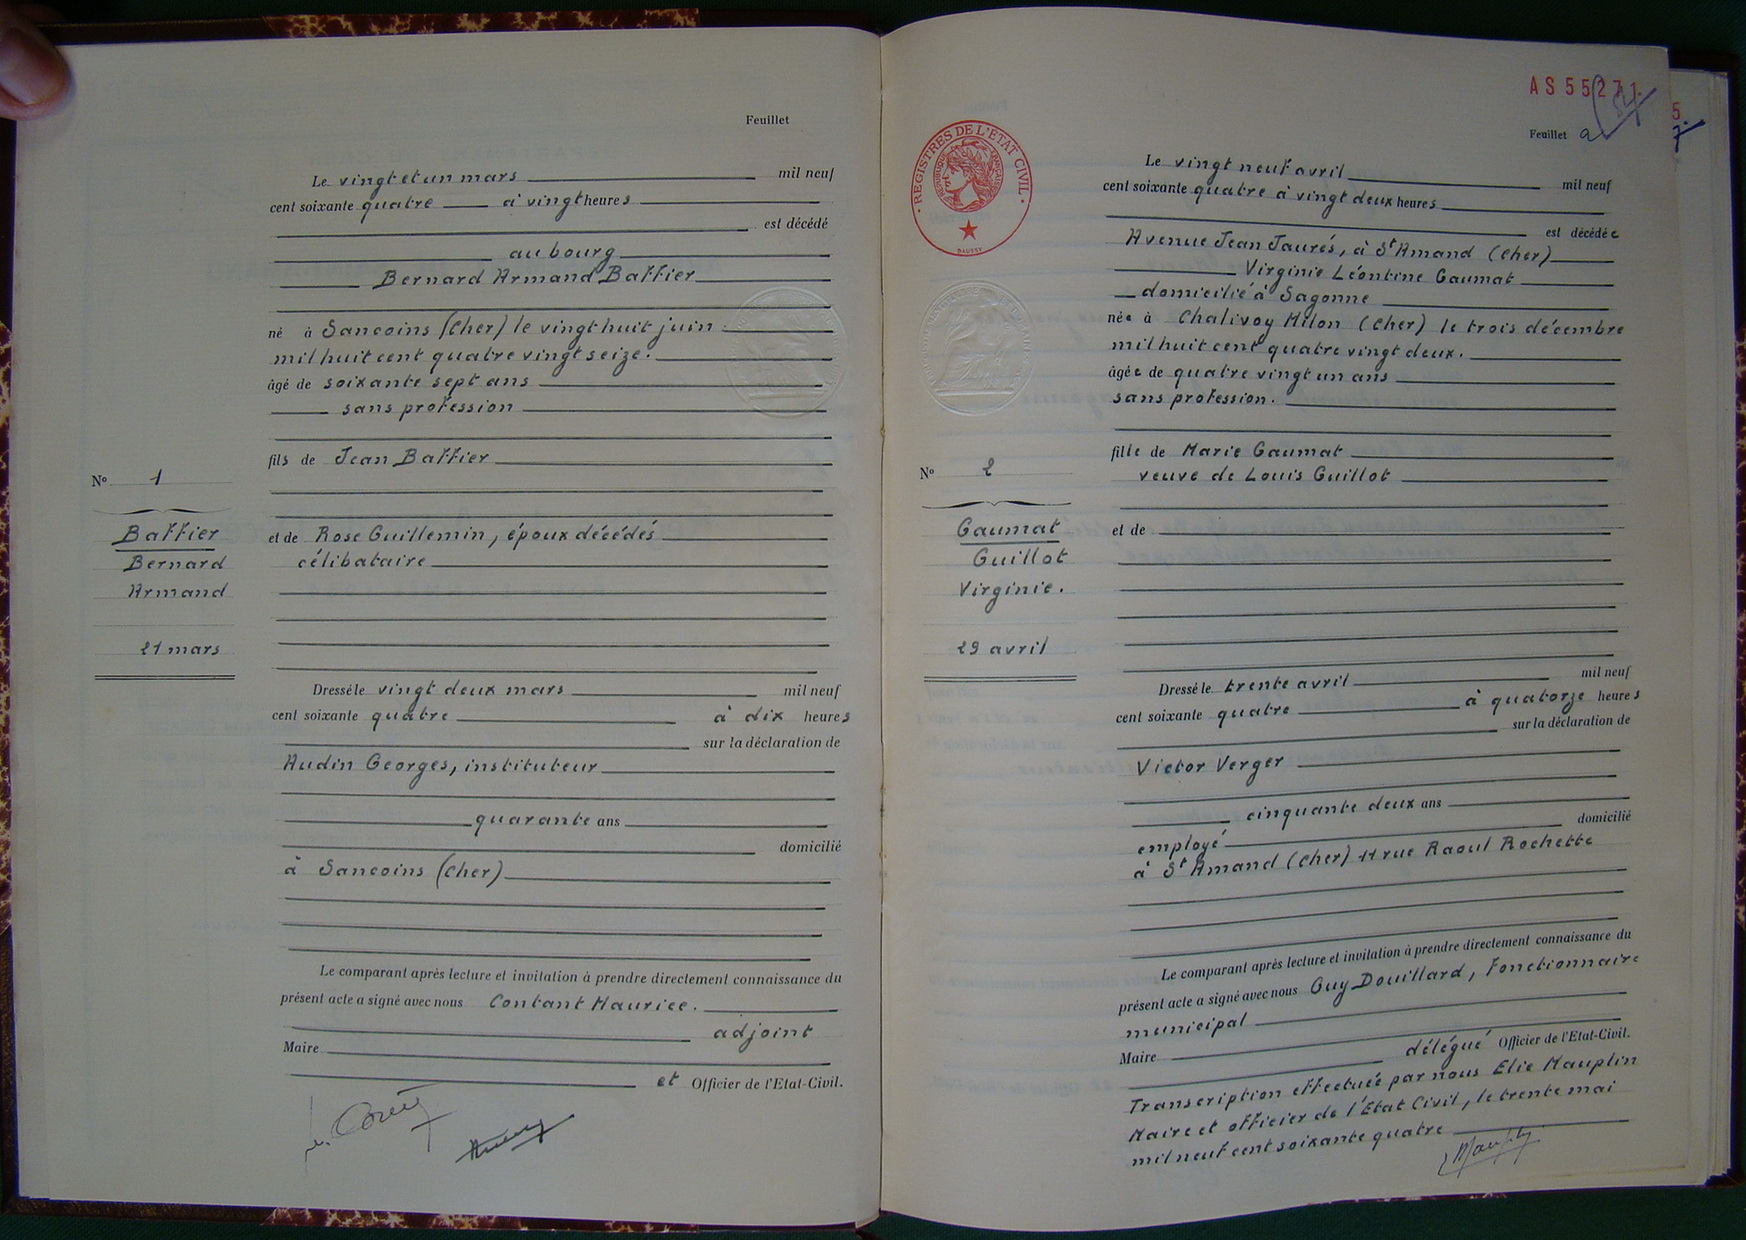 Feuillet
Le vingt et un mars mil neuf
cent soixante quatre à vingt heures
est décédé
au bourg
Bernard Armand Baffier
né à Sancoins (Cher) le vingt huit juin
mil huit cent quatre vingt seize.
âgé de soixante sept ans
sans profession
fils de Jean Baffier
No 1
Baffier
Bernard
Armand
21 mars
et de Rose Guillemin, époux décédés
célibataire
Dressé le vingt deux mars mil neuf
cent soixante quatre à dix heures
sur la déclaration de
Audin Georges, instituteur
quarante ans
domicilié
à Sancoins (Cher)
Le comparant après lecture et invitation à prendre directement connaissance du
présent acte a signé avec nous Contant Maurice.
adjoint
Maire
et Officier de l'Etat-Civil.
AS 55271
Feuillet 2
REGISTRES DE L'ETAT CIVIL
REPUBLIQUE FRANÇAISE
DAUSSY
Le vingt neuf avril mil neuf
cent soixante quatre à vingt deux heures
est décédée
Avenue Jean Jaurés, à St Amand (Cher)
Virginie Léontine Gaumat
domicilié à Sagonne
née à Chalivoy Milon (Cher) le trois décembre
mil huit cent quatre vingt deux.
âgée de quatre vingt un ans
sans profession.
fille de Marie Gaumat
veuve de Louis Guillot
No 2
Gaumat
Guillot
Virginie.
29 avril
et de
Dressé le trente avril mil neuf
cent soixante quatre à quatorze heures
sur la déclaration de
Victor Verger
cinquante deux ans
employé domicilié
à St Amand (Cher) 11 rue Raoul Rochette
Le comparant après lecture et invitation à prendre directement connaissance du
présent acte a signé avec nous Guy Douillard, Fonctionnaire
municipal
Maire délégué Officier de l'Etat-Civil.
Transcription effectuée par nous Elie Mauplin
Maire et officier de l'Etat Civil, le trente mai
mil neuf cent soixante quatre